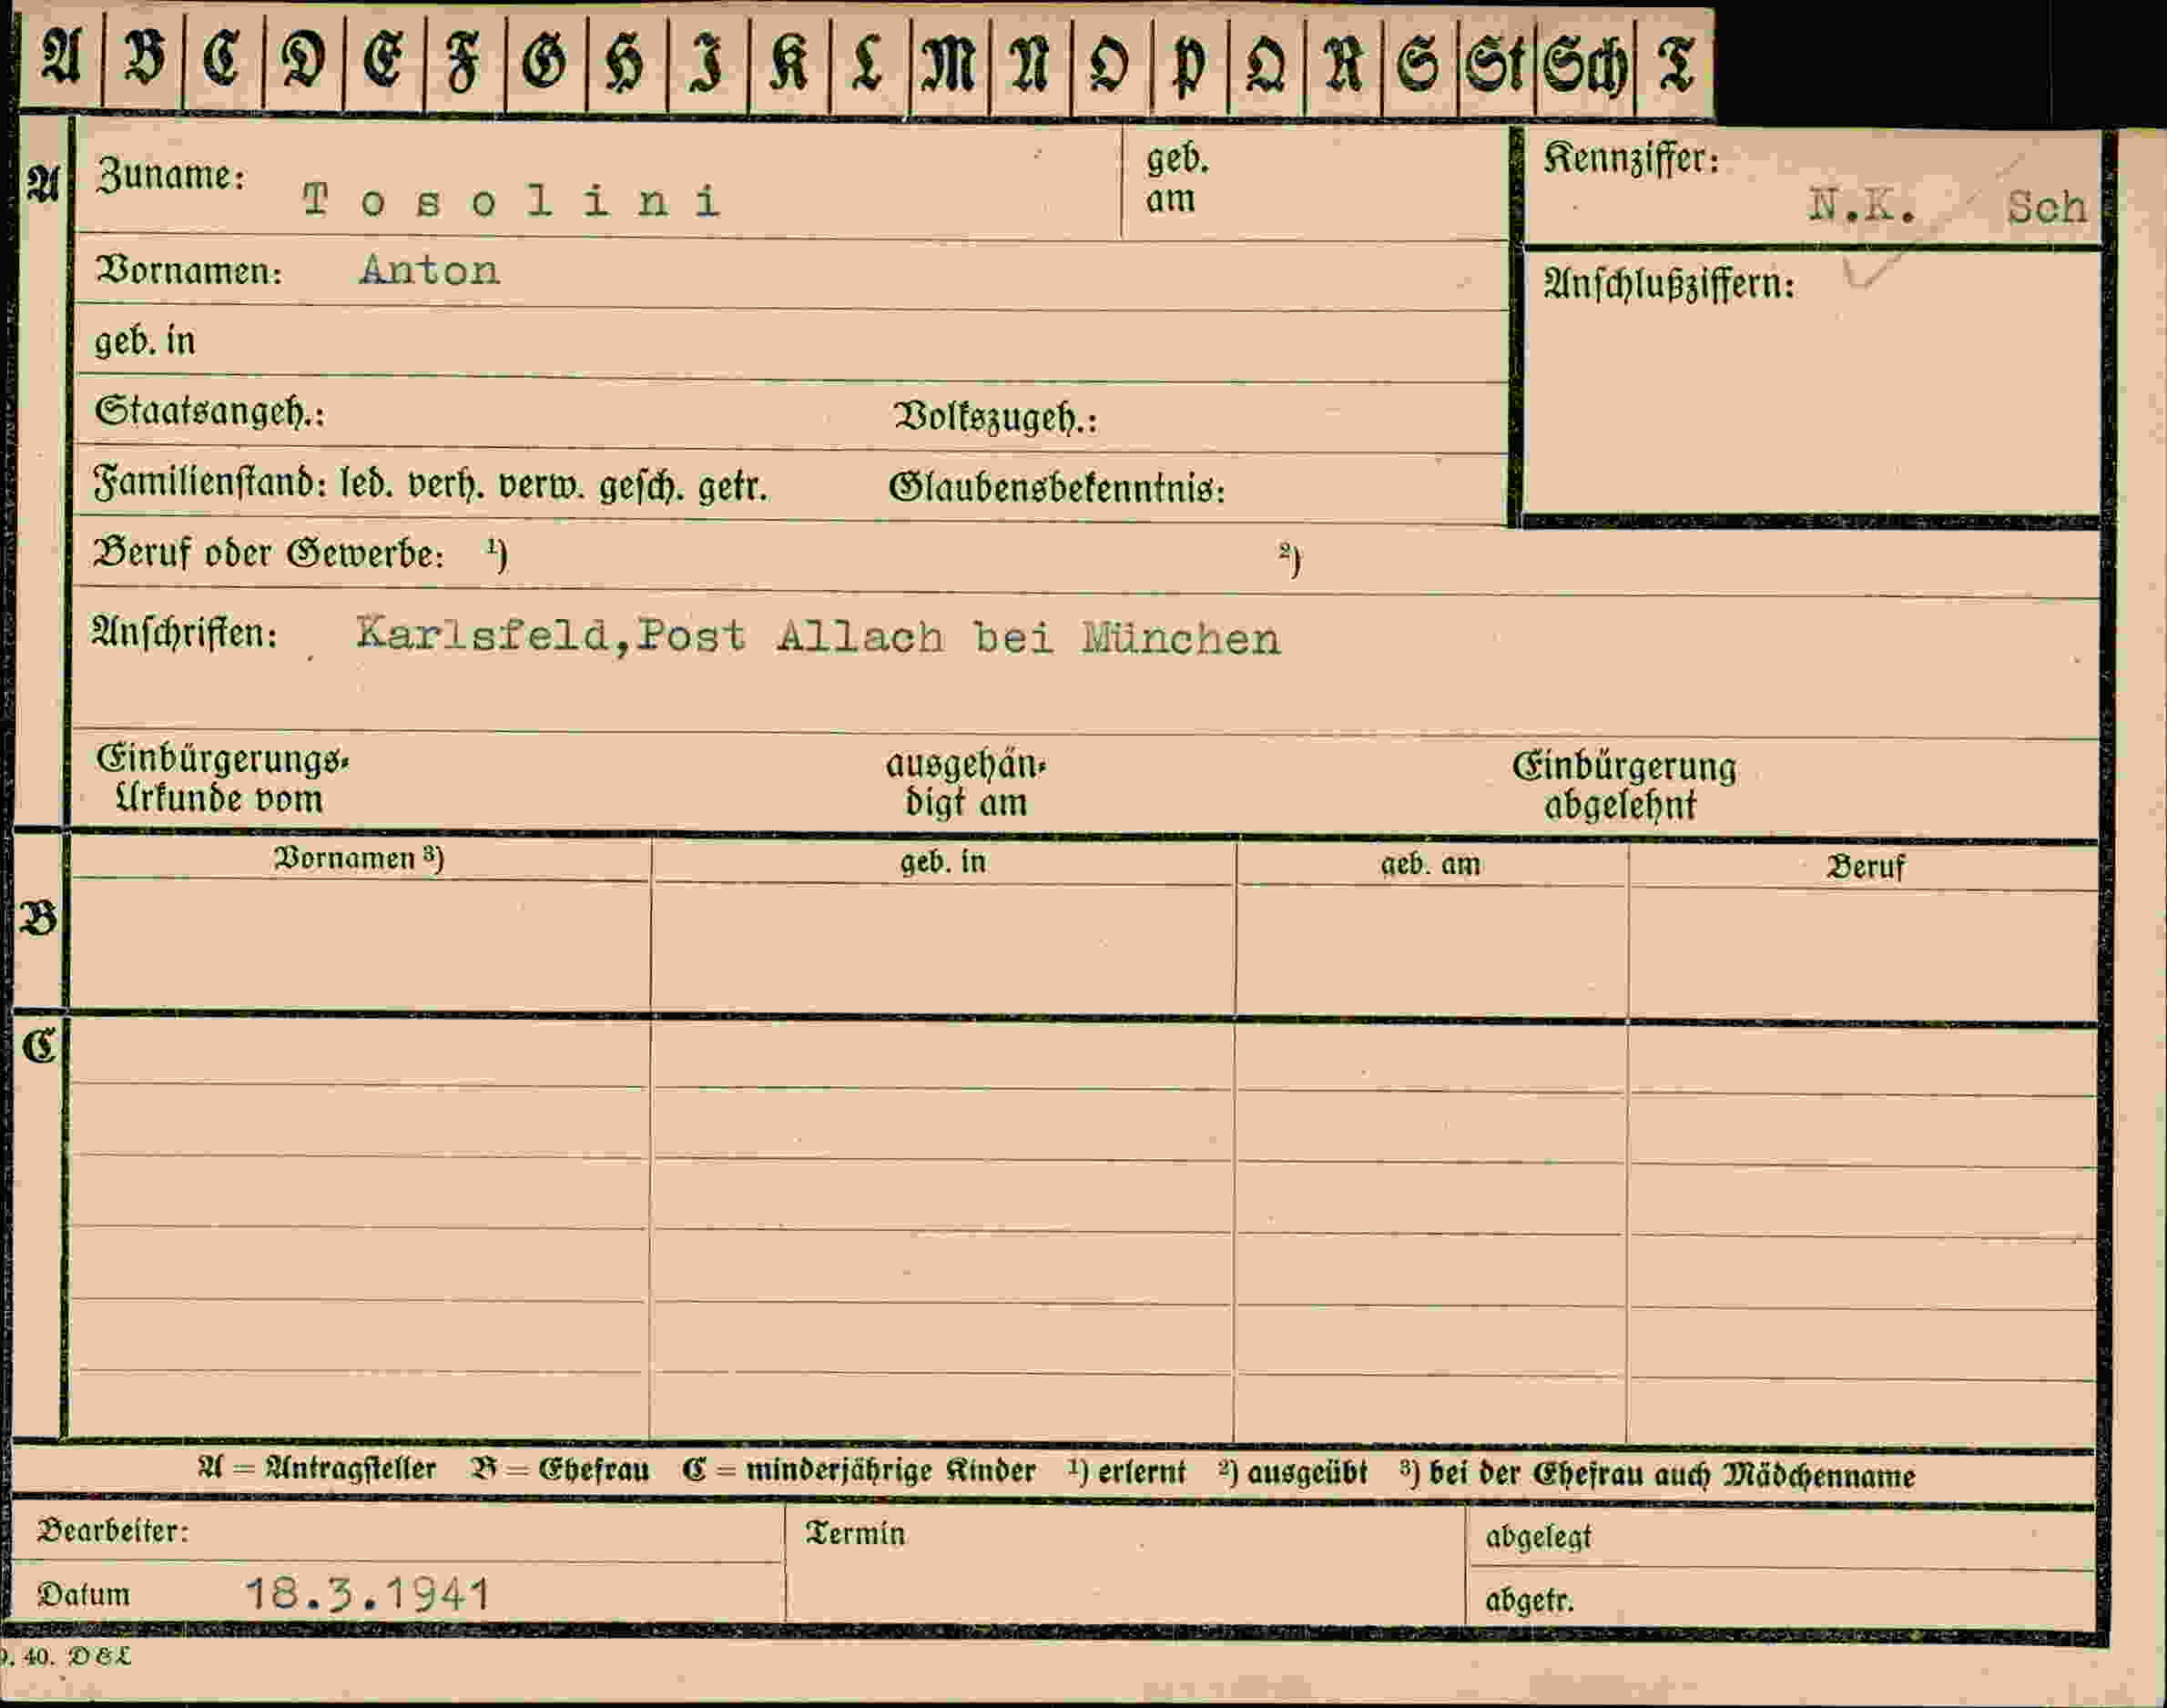 A B C D E F G H I K L M N O P Q R S St Sch T
A Zuname: Tosolini geb. am Kennziffer: N.K. Sch
Vornamen: Anton Anschlußziffern:
geb. in
Staatsangeh.: Volkszugeh.:
Familienstand: led. verh. verw. gesch. getr. Glaubensbekenntnis:
Beruf oder Gewerbe: ¹) ²)
Anschriften: Karlsfeld,Post Allach bei München
Einbürgerungs- ausgehän- Einbürgerung
Urkunde vom digt am abgelehnt
Vornamen ³) geb. in geb. am Beruf
B
C
A = Antragsteller B = Ehefrau C = minderjährige Kinder ¹) erlernt ²) ausgeübt ³) bei der Ehefrau auch Mädchenname
Bearbeiter: Termin abgelegt
Datum 18.3.1941 abgetr.
40. D&L